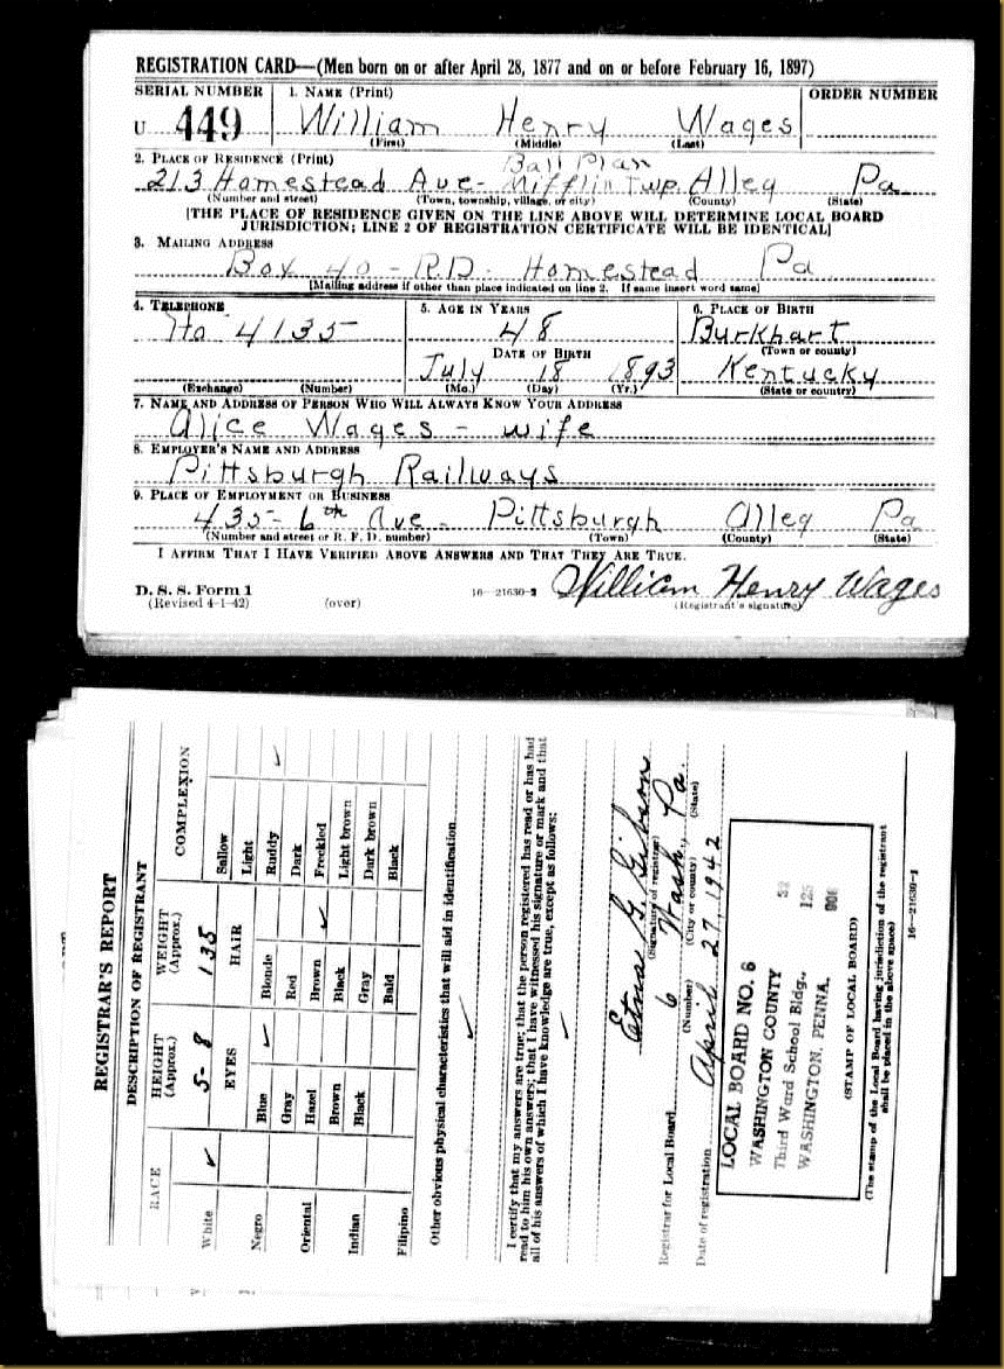 REGISTRATION CARD—(Men born on or after April 28, 1877 and on or before February 16, 1897)
SERIAL NUMBER 1. NAME (Print) ORDER NUMBER
U 449 William Henry Wages
(First) (Middle) (Last)
2. PLACE OF RESIDENCE (Print)
Ball Plan
213 Homestead Ave - Mifflin Twp. Alleg Pa
(Number and street) (Town, township, village, or city) (County) (State)
[THE PLACE OF RESIDENCE GIVEN ON THE LINE ABOVE WILL DETERMINE LOCAL BOARD
JURISDICTION; LINE 2 OF REGISTRATION CERTIFICATE WILL BE IDENTICAL]
3. MAILING ADDRESS
Box 40 - R.D. Homestead Pa
[Mailing address if other than place indicated on line 2. If same insert word same]
4. TELEPHONE 5. AGE IN YEARS 6. PLACE OF BIRTH
Ho 4135 48 Burkhart
DATE OF BIRTH (Town or county)
July 18 1893 Kentucky
(Exchange) (Number) (Mo.) (Day) (Yr.) (State or country)
7. NAME AND ADDRESS OF PERSON WHO WILL ALWAYS KNOW YOUR ADDRESS
Alice Wages - wife
8. EMPLOYER'S NAME AND ADDRESS
Pittsburgh Railways
9. PLACE OF EMPLOYMENT OR BUSINESS
435 - 6th Ave. Pittsburgh Alleg Pa
(Number and street or R. F. D. number) (Town) (County) (State)
I AFFIRM THAT I HAVE VERIFIED ABOVE ANSWERS AND THAT THEY ARE TRUE.
D. S. S. Form 1
(Revised 4-1-42) (over) 16—21630-2 William Henry Wages
(Registrant's signature)
REGISTRAR'S REPORT
DESCRIPTION OF REGISTRANT
RACE HEIGHT (Approx.) WEIGHT (Approx.) COMPLEXION
5-8 135
White ✓ EYES HAIR Sallow
Light
Negro Blue ✓ Blonde Ruddy ✓
Gray Red Dark
Oriental Hazel Brown ✓ Freckled
Brown Black Light brown
Indian Black Gray Dark brown
Filipino Bald Black
Other obvious physical characteristics that will aid in identification
✓
I certify that my answers are true; that the person registered has read or has had
read to him his own answers; that I have witnessed his signature or mark and that
all of his answers of which I have knowledge are true, except as follows:
✓
Gibson
(Signature of registrar)
Registrar for Local Board 6 Wash, Pa.
(Number) (City or county) (State)
Date of registration April 27, 1942
LOCAL BOARD NO. 6
WASHINGTON COUNTY 32
Third Ward School Bldg., 125
WASHINGTON, PENNA. 006
(STAMP OF LOCAL BOARD)
(The stamp of the Local Board having jurisdiction of the registrant
shall be placed in the above space)
16—21630-1